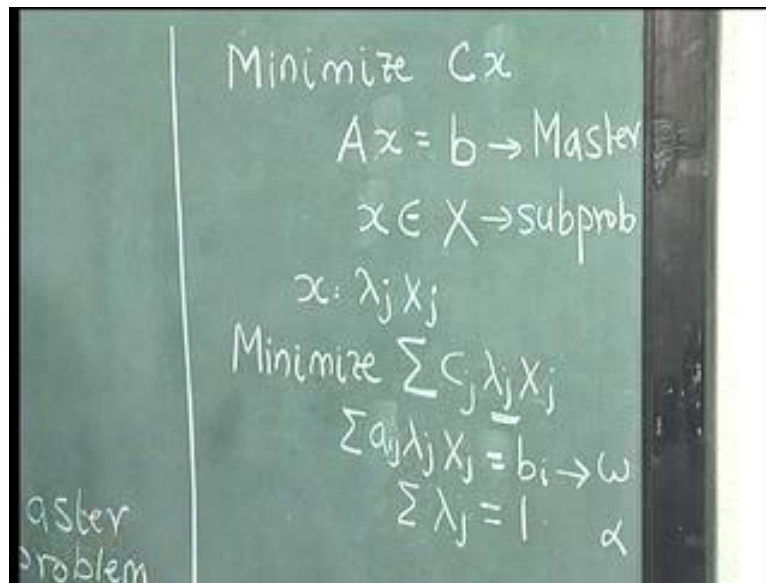 Minimize Cx
Ax = b → Master
x ∈ X → subprob
x: λj Xj
Minimize Σ Cj λj Xj
Σ aij λj Xj = bi → ω
Σ λj = 1 α
aster
problem